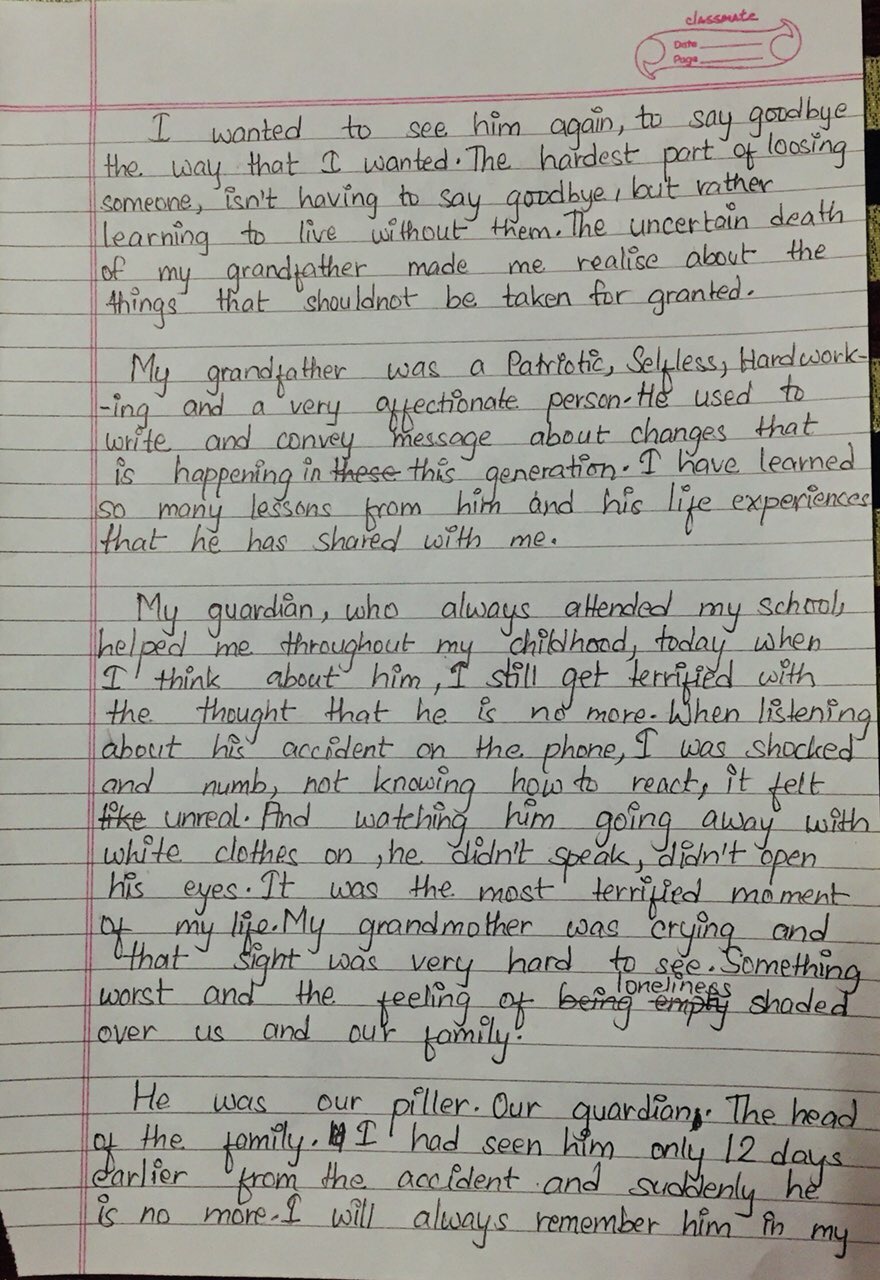 classmate
Date
Page
I wanted to see him again, to say goodbye
the way that I wanted. The hardest part of loosing
someone, isn't having to say goodbye, but rather
learning to live without them. The uncertain death
of my grandfather made me realise about the
things that shouldnot be taken for granted.
My grandfather was a Patriotic, Selfless, Hardwork-
-ing and a very affectionate person. He used to
write and convey message about changes that
is happening in these this generation. I have learned
so many lessons from him and his life experiences
that he has shared with me.
My guardian, who always attended my school,
helped me throughout my childhood, today when
I think about him, I still get terrified with
the thought that he is no more. When listening
about his accident on the phone, I was shocked
and numb, not knowing how to react, it felt
like unreal. And watching him going away with
white clothes on, he didn't speak, didn't open
his eyes. It was the most terrified moment
of my life. My grandmother was crying and
that sight was very hard to see. Something
worst and the feeling of being empty loneliness shaded
over us and our family.
He was our piller. Our guardian. The head
of the family. I had seen him only 12 days
earlier from the accident and suddenly he
is no more. I will always remember him in my